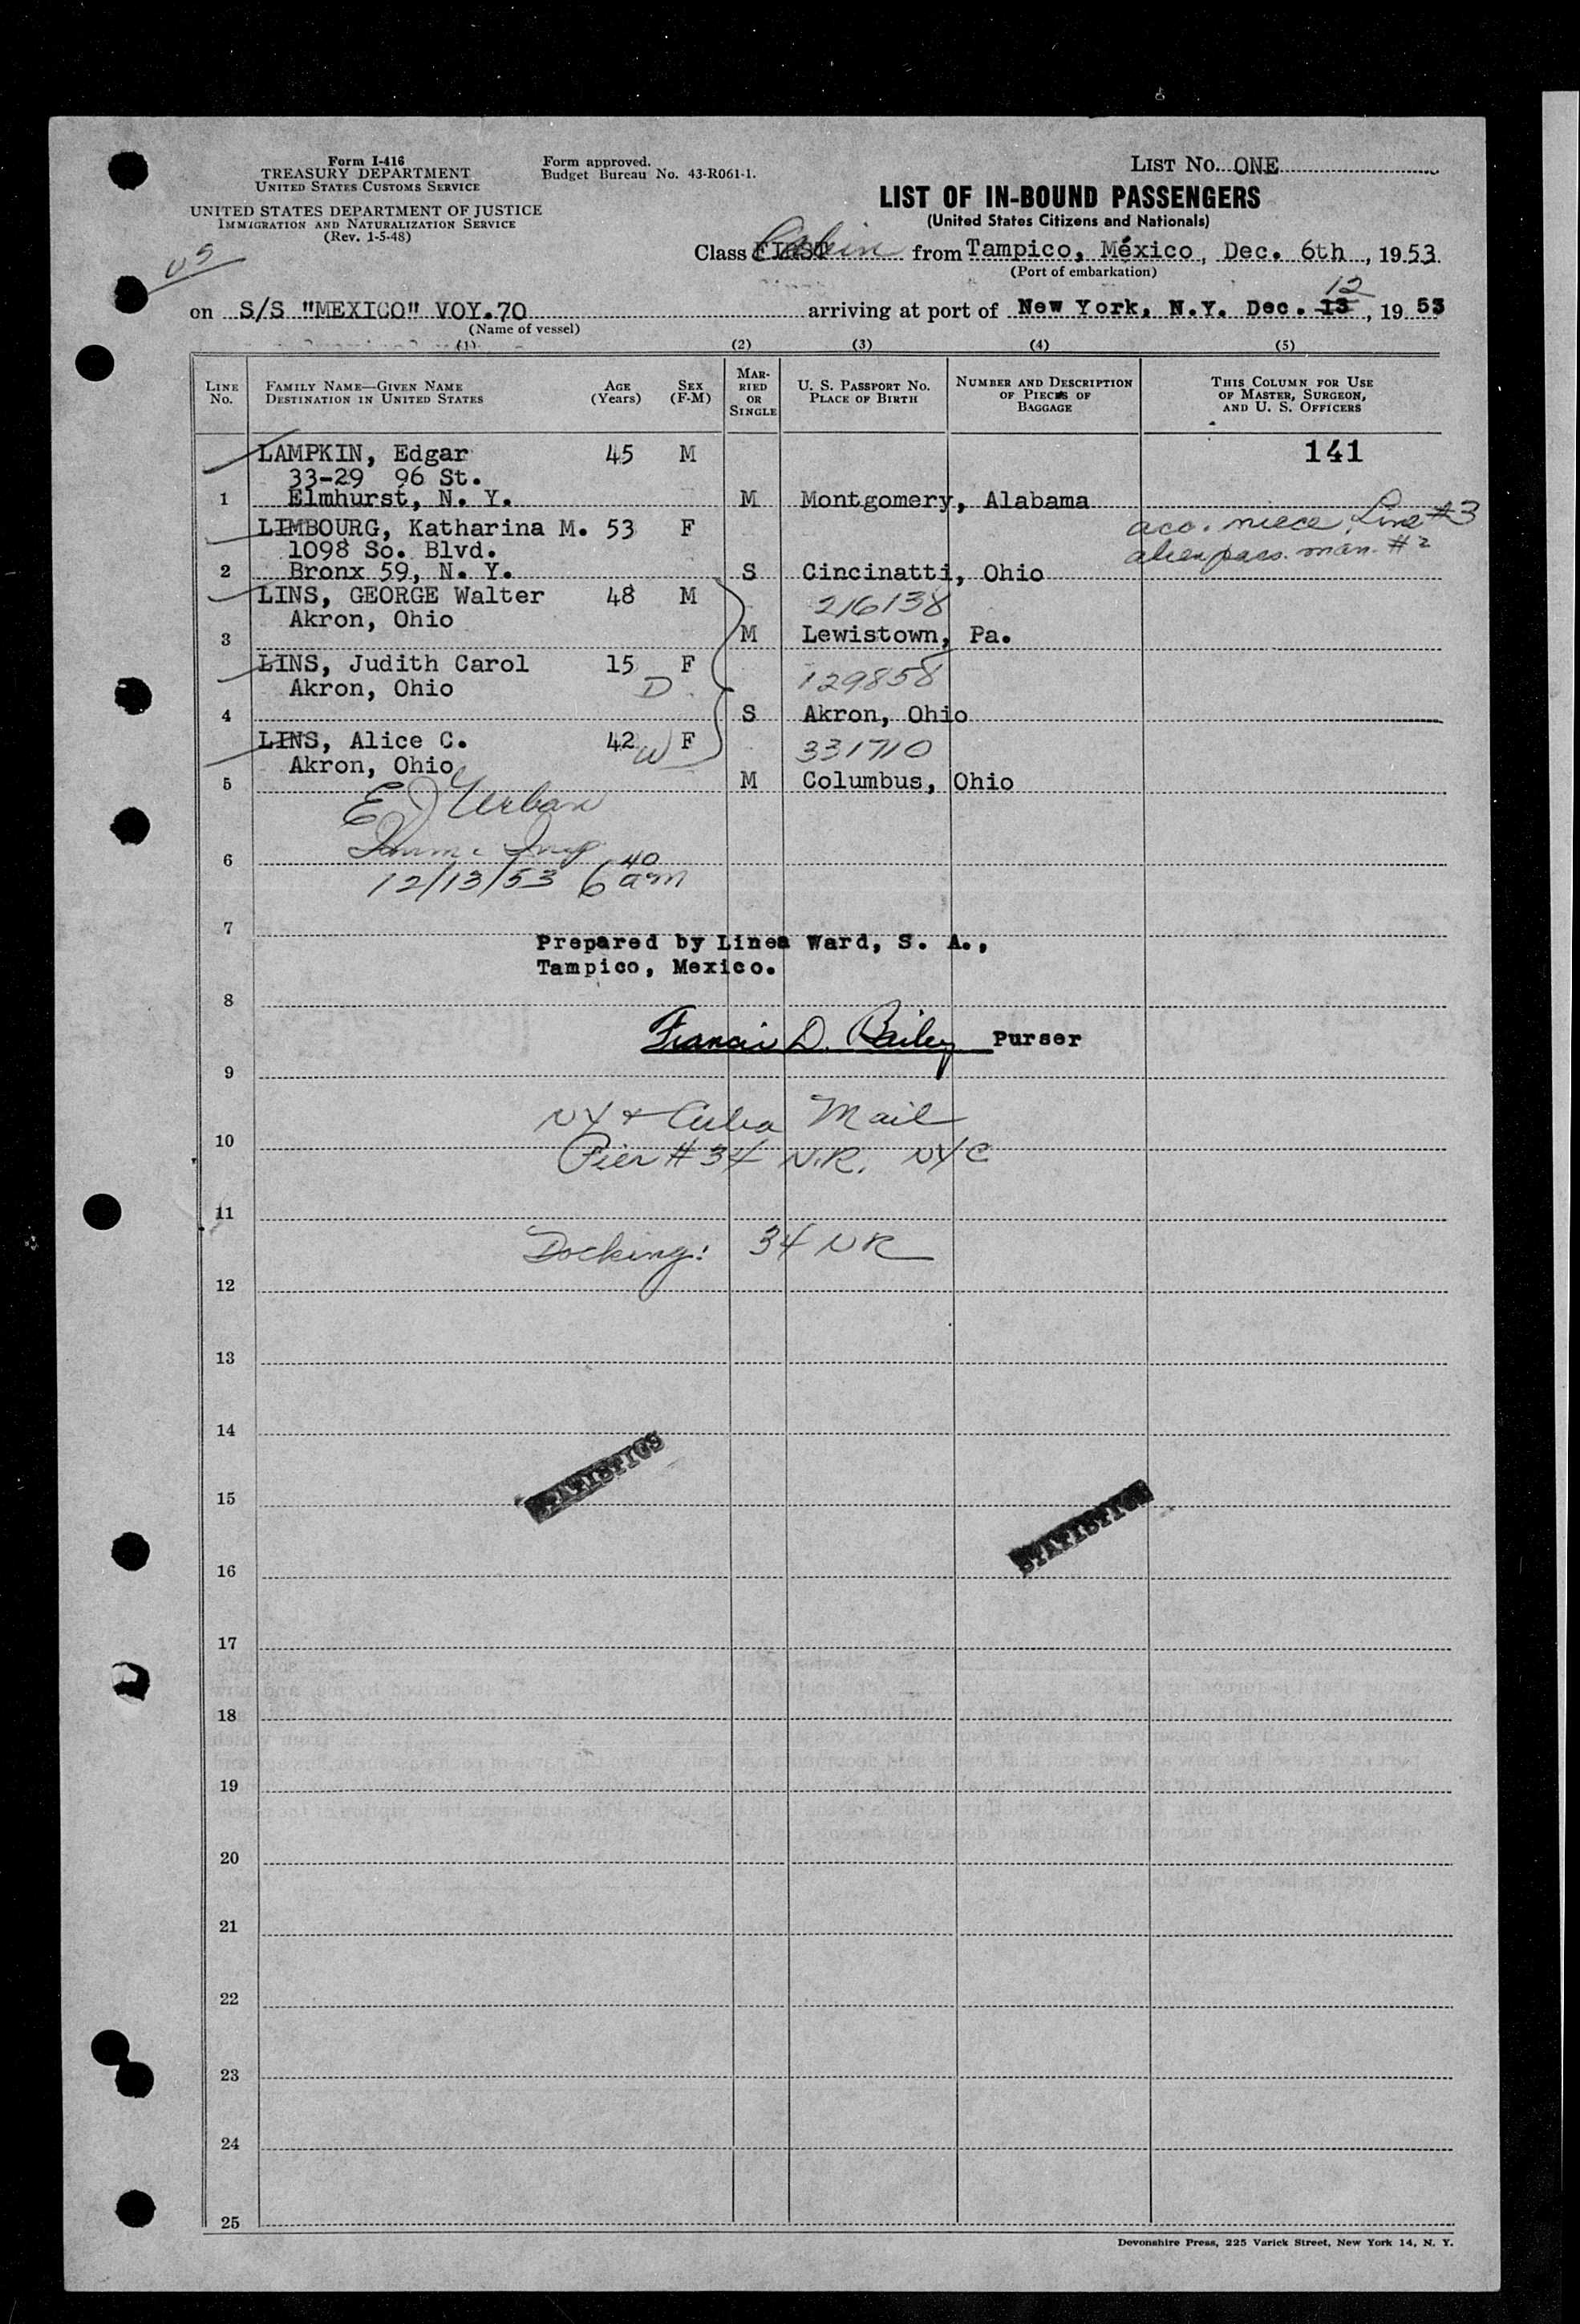 Form I-416
TREASURY DEPARTMENT
UNITED STATES CUSTOMS SERVICE
UNITED STATES DEPARTMENT OF JUSTICE
IMMIGRATION AND NATURALIZATION SERVICE
(Rev. 1-5-48)
Form approved.
Budget Bureau No. 43-R061-1.
LIST No. ONE
LIST OF IN-BOUND PASSENGERS
(United States Citizens and Nationals)
Class FIRST Cabin from Tampico, México, Dec. 6th, 1953
(Port of embarkation)
12
on S/S "MEXICO" VOY.70 arriving at port of New York, N.Y. Dec. 13, 19 53
(Name of vessel)
(1) (2) (3) (4) (5)
LINE No.
FAMILY NAME—GIVEN NAME
DESTINATION IN UNITED STATES
AGE (Years)
SEX (F-M)
MARRIED OR SINGLE
U. S. PASSPORT NO.
PLACE OF BIRTH
NUMBER AND DESCRIPTION OF PIECES OF BAGGAGE
THIS COLUMN FOR USE OF MASTER, SURGEON, AND U. S. OFFICERS
LAMPKIN, Edgar 45 M 141
33-29 96 St.
1 Elmhurst, N. Y. M Montgomery, Alabama
LIMBOURG, Katharina M. 53 F acc. niece Line #3
1098 So. Blvd. alien pass. man. #2
2 Bronx 59, N. Y. S Cincinatti, Ohio
LINS, GEORGE Walter 48 M 216138
Akron, Ohio
3 M Lewistown, Pa.
LINS, Judith Carol 15 F 129858
Akron, Ohio D
4 S Akron, Ohio
LINS, Alice C. 42 W F 331710
Akron, Ohio
5 M Columbus, Ohio
E J Urban
Imm. Insp
6
12/13/53 6 40 am
7
Prepared by Linea Ward, S. A.,
Tampico, Mexico.
8
Francis D. Bailey Purser
9
NY & Cuba Mail
10
Pier #34 N.R. NYC
11
Docking: 34 NR
12
13
14
STATISTICS
15
STATISTICS
16
17
18
19
20
21
22
23
24
25
Devonshire Press, 225 Varick Street, New York 14, N. Y.